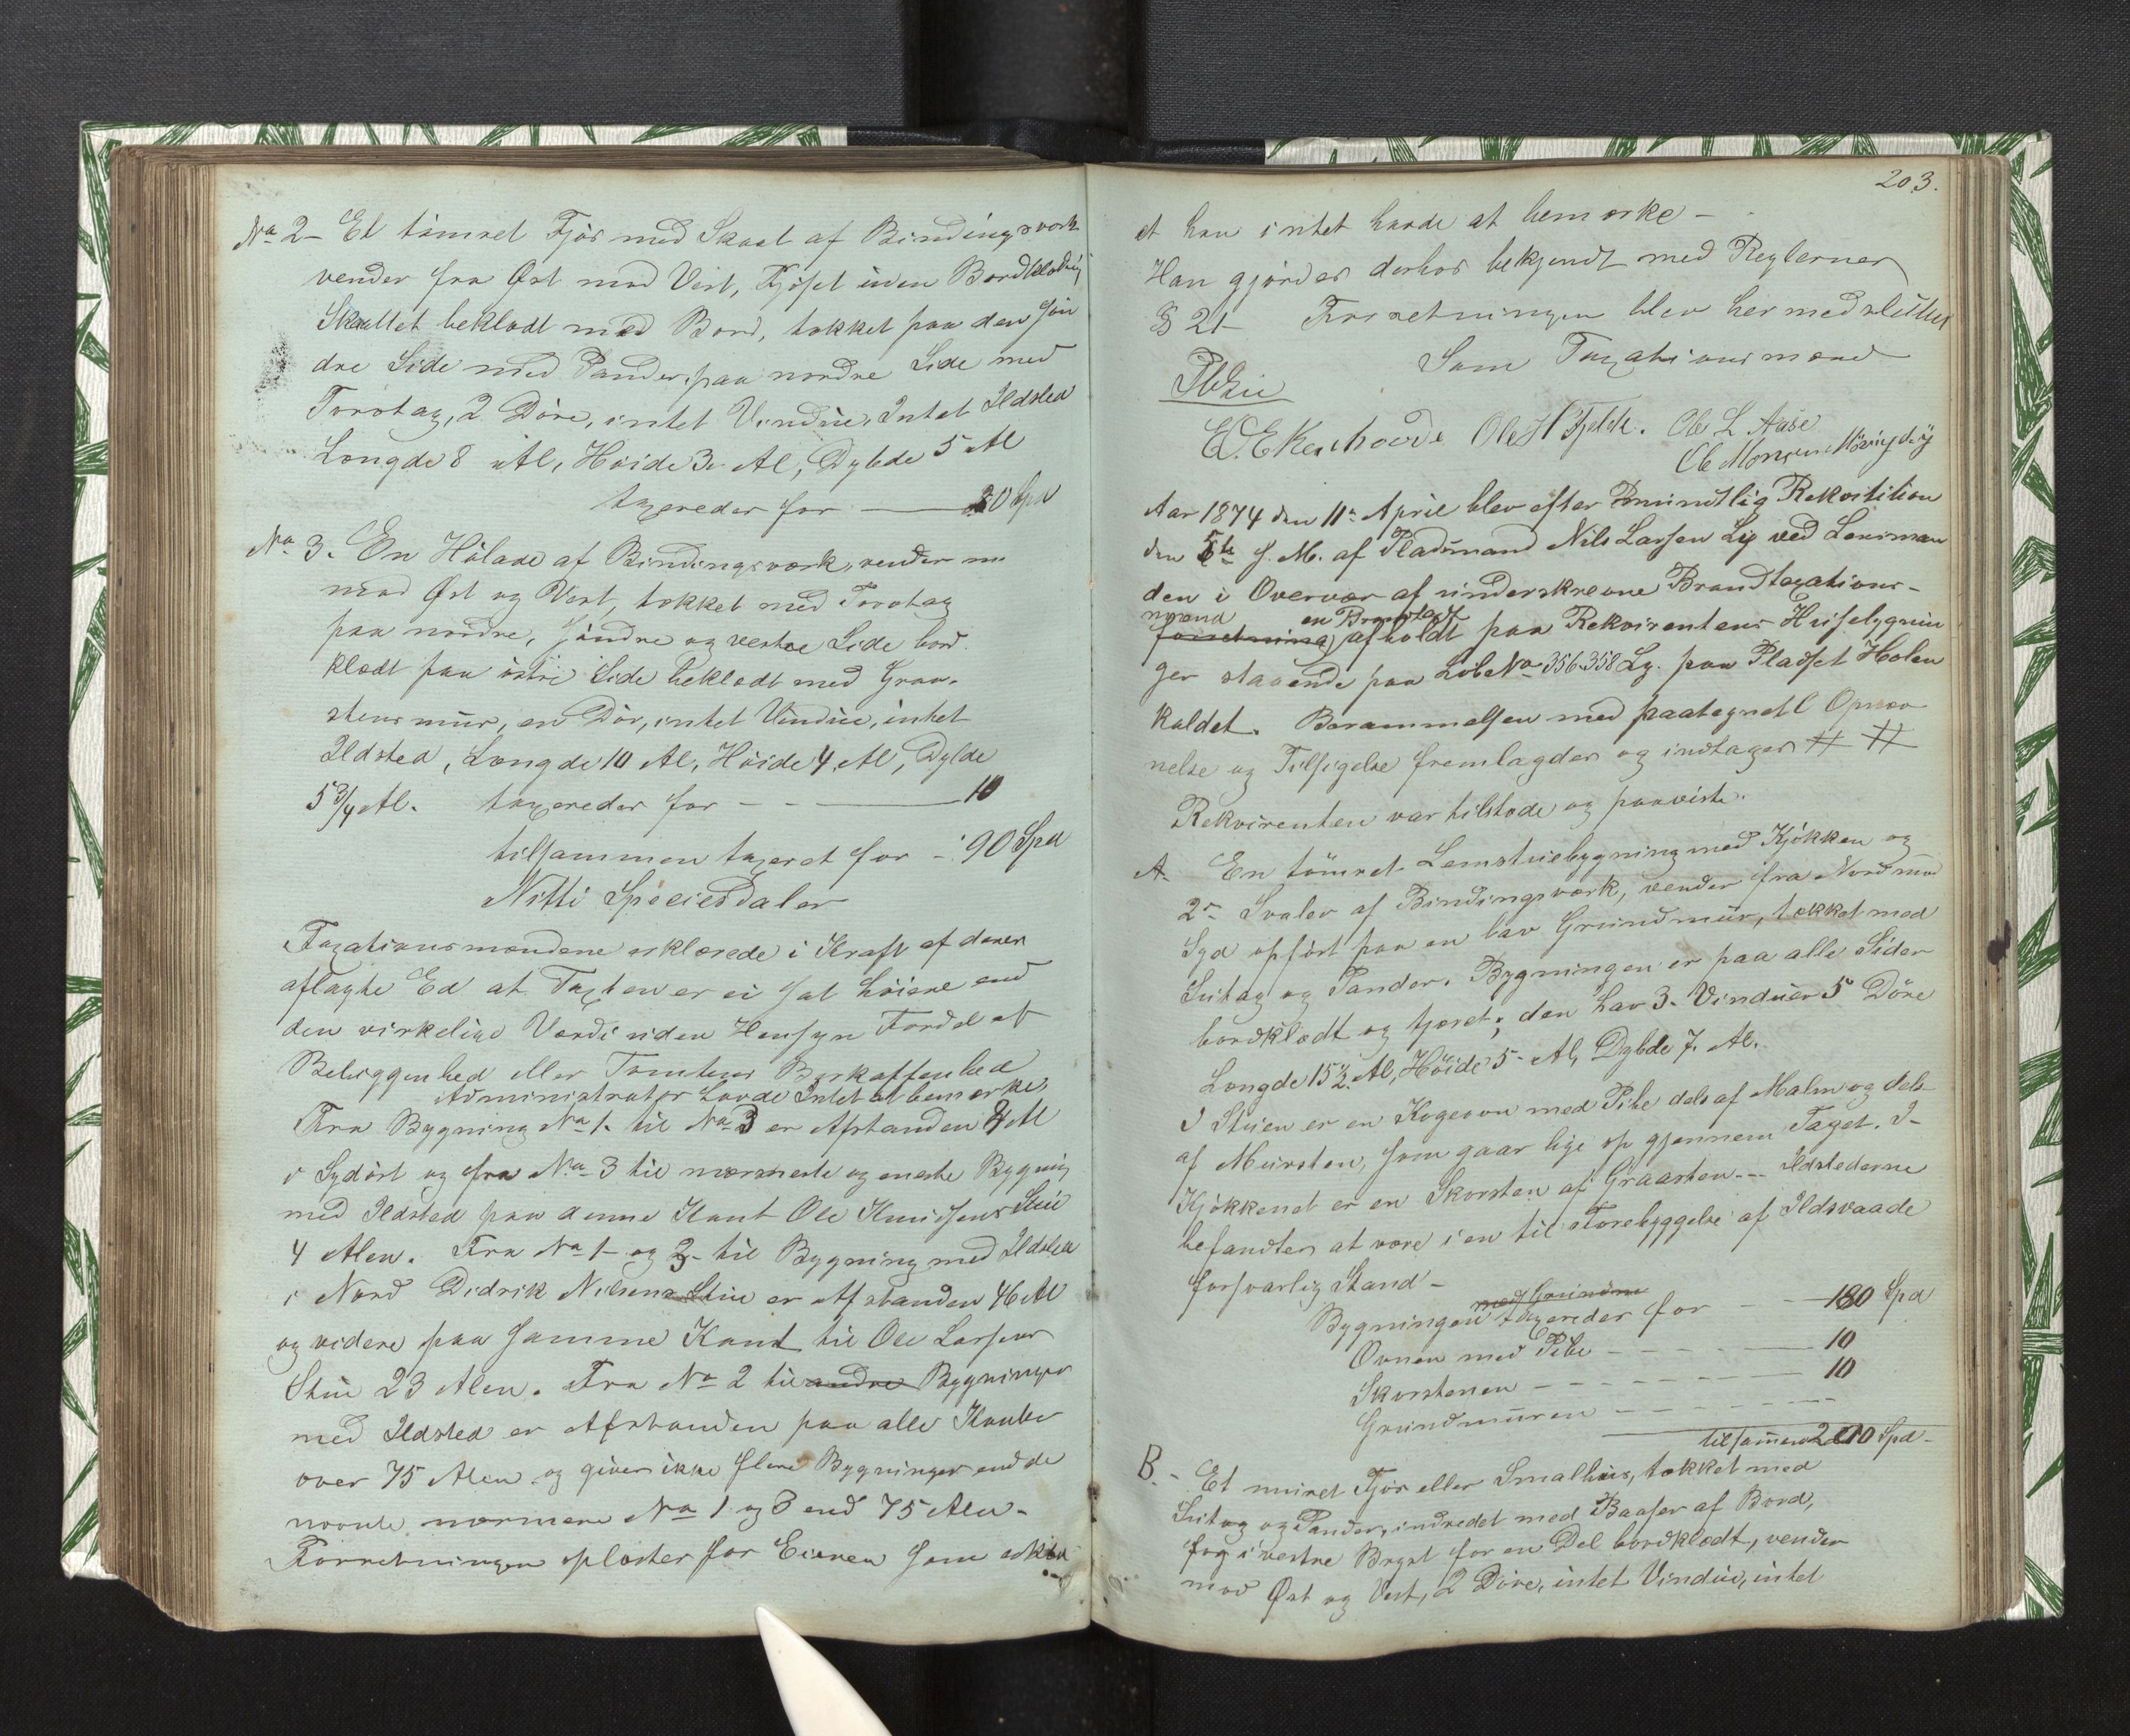 No 2- Et tömret Fjös med Skaat af Bindingsverk
vender fra Øst mod Vest, Fjöset uden Bordklædnig
Skaattet beklædt med Bord, tækket paa den sön
dre Side med Pander, paa nordre Side med
Torvtag, 2 Döre, intet Vindue, Intet Ildsted
Længde 8 Al, Höide 3 Al, Dybde 5 Al
taxeredes for — 20 Spd
No 3. En Hölade af Bindingsværk, vender
mod Øst og Vest, tækket med Torvtag
paa nordre, söndre og vestre Side bord
klædt paa östre Side beklædt med Graa-
steensmuur, en Dör, intet Vindue, intet
Ildsted, Længde 10 Al, Höide 4 Al, Dybde
5 3/4 Al. taxeredes for - - — 10
tilsammen taxeret for - 90 Spd
Nitti Speciedaler
Taxationsmændene erklærede i Kraft af deres
aflagte Ed at Taxten er ei sat höiere end
den virkelige Værdi uden Hensyn Fordel af
Beliggenhed eller Tomtens Beskaffenhed
Administrator havde Intet at bemærke,
Fra Bygning No 1. til No 3 er Afstanden 8 Al
i Sydöst og fra No 3 til nærmeste og eneste Bygnig
med Ildsted paa denne Kant Ole Knudsens Stue
4 Alen. Fra No 1- og 3- til Bygning med Ildsted
i Nord Didrik Nilsens Stue er Afstanden 46 Al
og videre paa samme Kant til Ole Larsens
Stue 23 Alen. Fra No 2 til andre Bygninger
med Ildsted er Afstanden paa alle Kanter
over 75 Alen og gives ikke flere Bygninger end de
nævnte nærmere No 1 og 3 end 75 Alen-
Forretningen oplæstes for Eieren som erklæ
203.
at han intet havde at bemærke -
Han gjördes derhos bekjendt med Reglernes
§ 21- Forretningen blev hermed sluttet
Som Taxationsmænd
Ole H Fjelde. Ole L Aase
Ole Monsen
Aar 1874 den 11te April blev efter mundtlig Rekvisition
den 5te s. M. af Pladsmand Nils Larsen Ly ved Lensman
den i Overvær af underskrevne Brandtaxations-
mænd en Brandtaxt
forretning afholdt paa Rekvirentens Huusebygnin
ger staaende paa Löbe No 356.358 Ly. paa Pladset Holen
kaldet. Berammelsen med paategnet Opnæv
nelse og Tilsigelse fremlagdes og indtages # #
Rekvirenten var tilstæde og paaviste.
A. En tömret Lemstuebygning med Kjökken og
2de Svaler af Bindingsværk, vender fra Nord mod
Syd opfört paa en lav Grundmuur, tækket med
Lutag og Pander. Bygningen er paa alle Sider
bordklædt og tjæret; den har 3. Vinduer 5 Döre
Længde 15 1/2 Al, Höide 5- Al, Dybde 7. Al.
I Stuen er en Kogeovn med Pibe dels af Malm og dels
af Mursten, som gaar lige op gjennem Taget. I-
Kjökkenet er en Skorsten af Graasten. -- Ildstederne
befandtes at være i en til Forebyggelse af Ildsvaade
forsvarlig Stand-
med Grundm
Bygningen taxeredes for - - — 180 Spd
Ovnen med Pibe - - - - — 10
Skorstenen - - - - - - - — 10
Grundmuren - - - - - - -
tilsammen 200 Spd-
B.- Et muret Fjös eller Smalhuus, tækket med
Lutag og Pander, indredet med Baaser af Bord,
og i vestre Bryst for en Del bordklædt, vender
mod Øst og Vest, 2 Döre, intet Vindue, intet